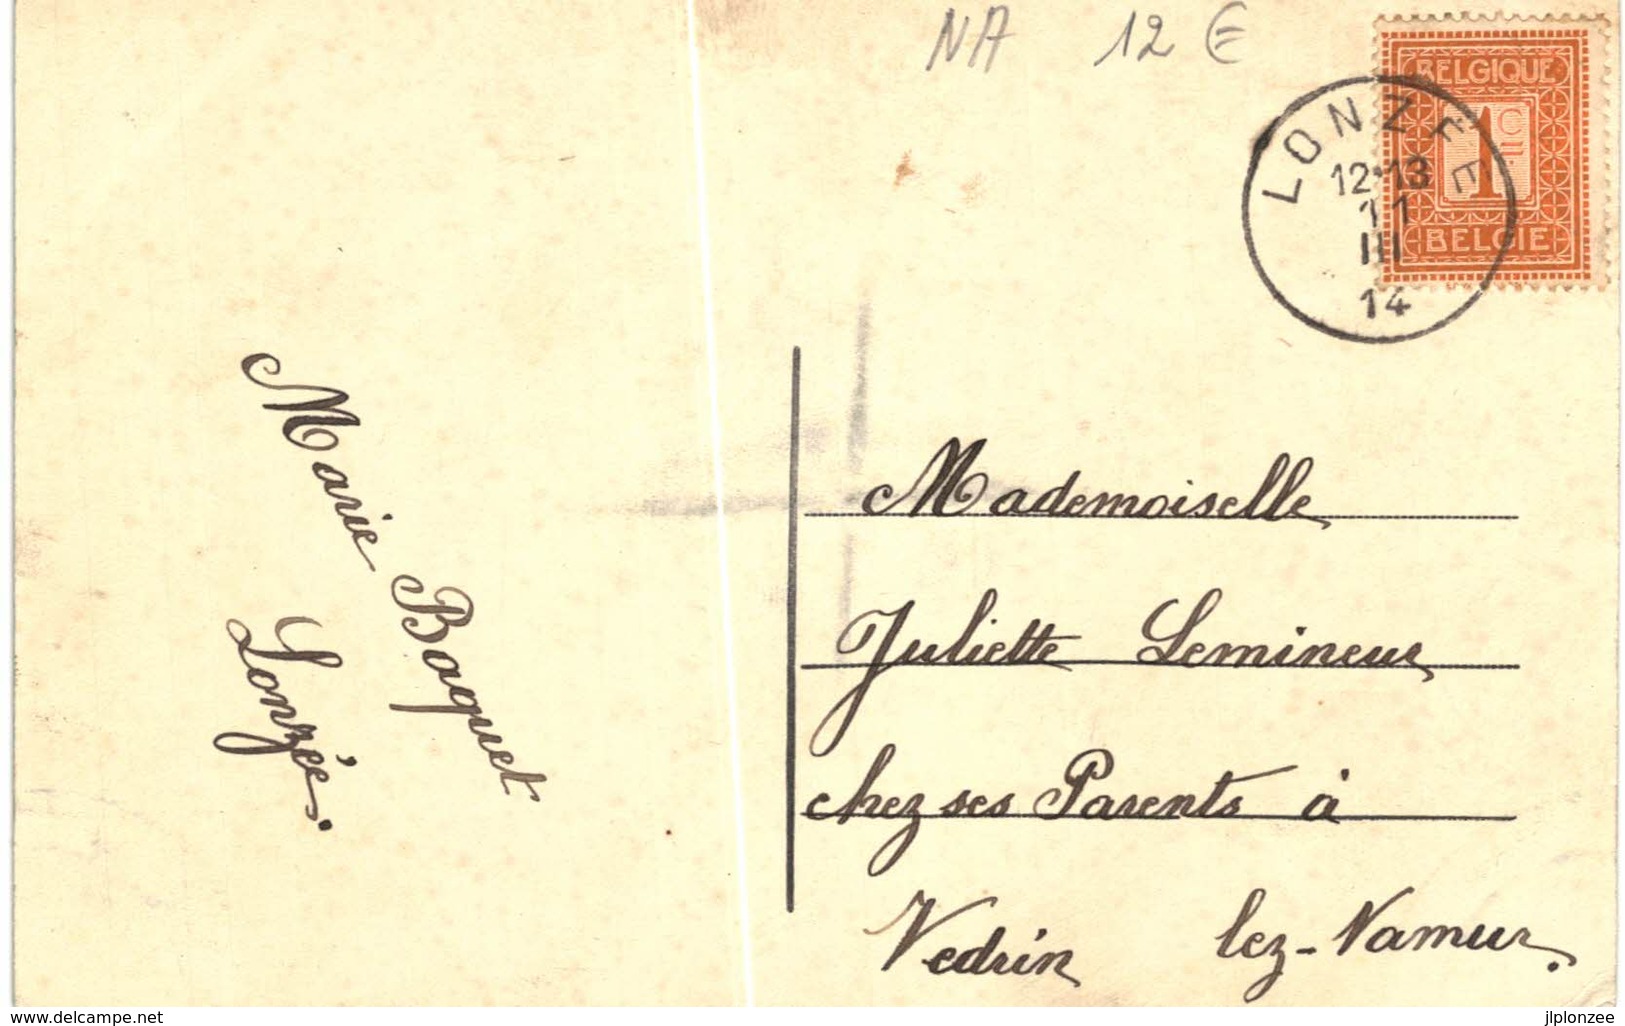 NA 12 €
BELGIQUE
1 C
BELGIË
LONZÉE
12-13
11
III
14
Marie Baquet
Lonzée.
Mademoiselle
Juliette Lemineur
chez ses Parents à
Vedrin lez-Namur.
www.delcampe.net
jlplonzee